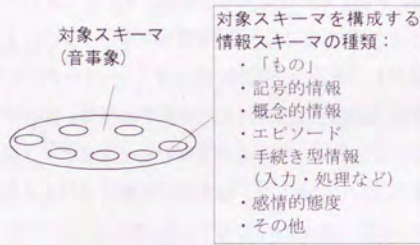 対象スキーマ
(音事象)
対象スキーマを構成する
情報スキーマの種類：
・「もの」
・記号的情報
・概念的情報
・エピソード
・手続き型情報
(入力・処理など)
・感情的態度
・その他